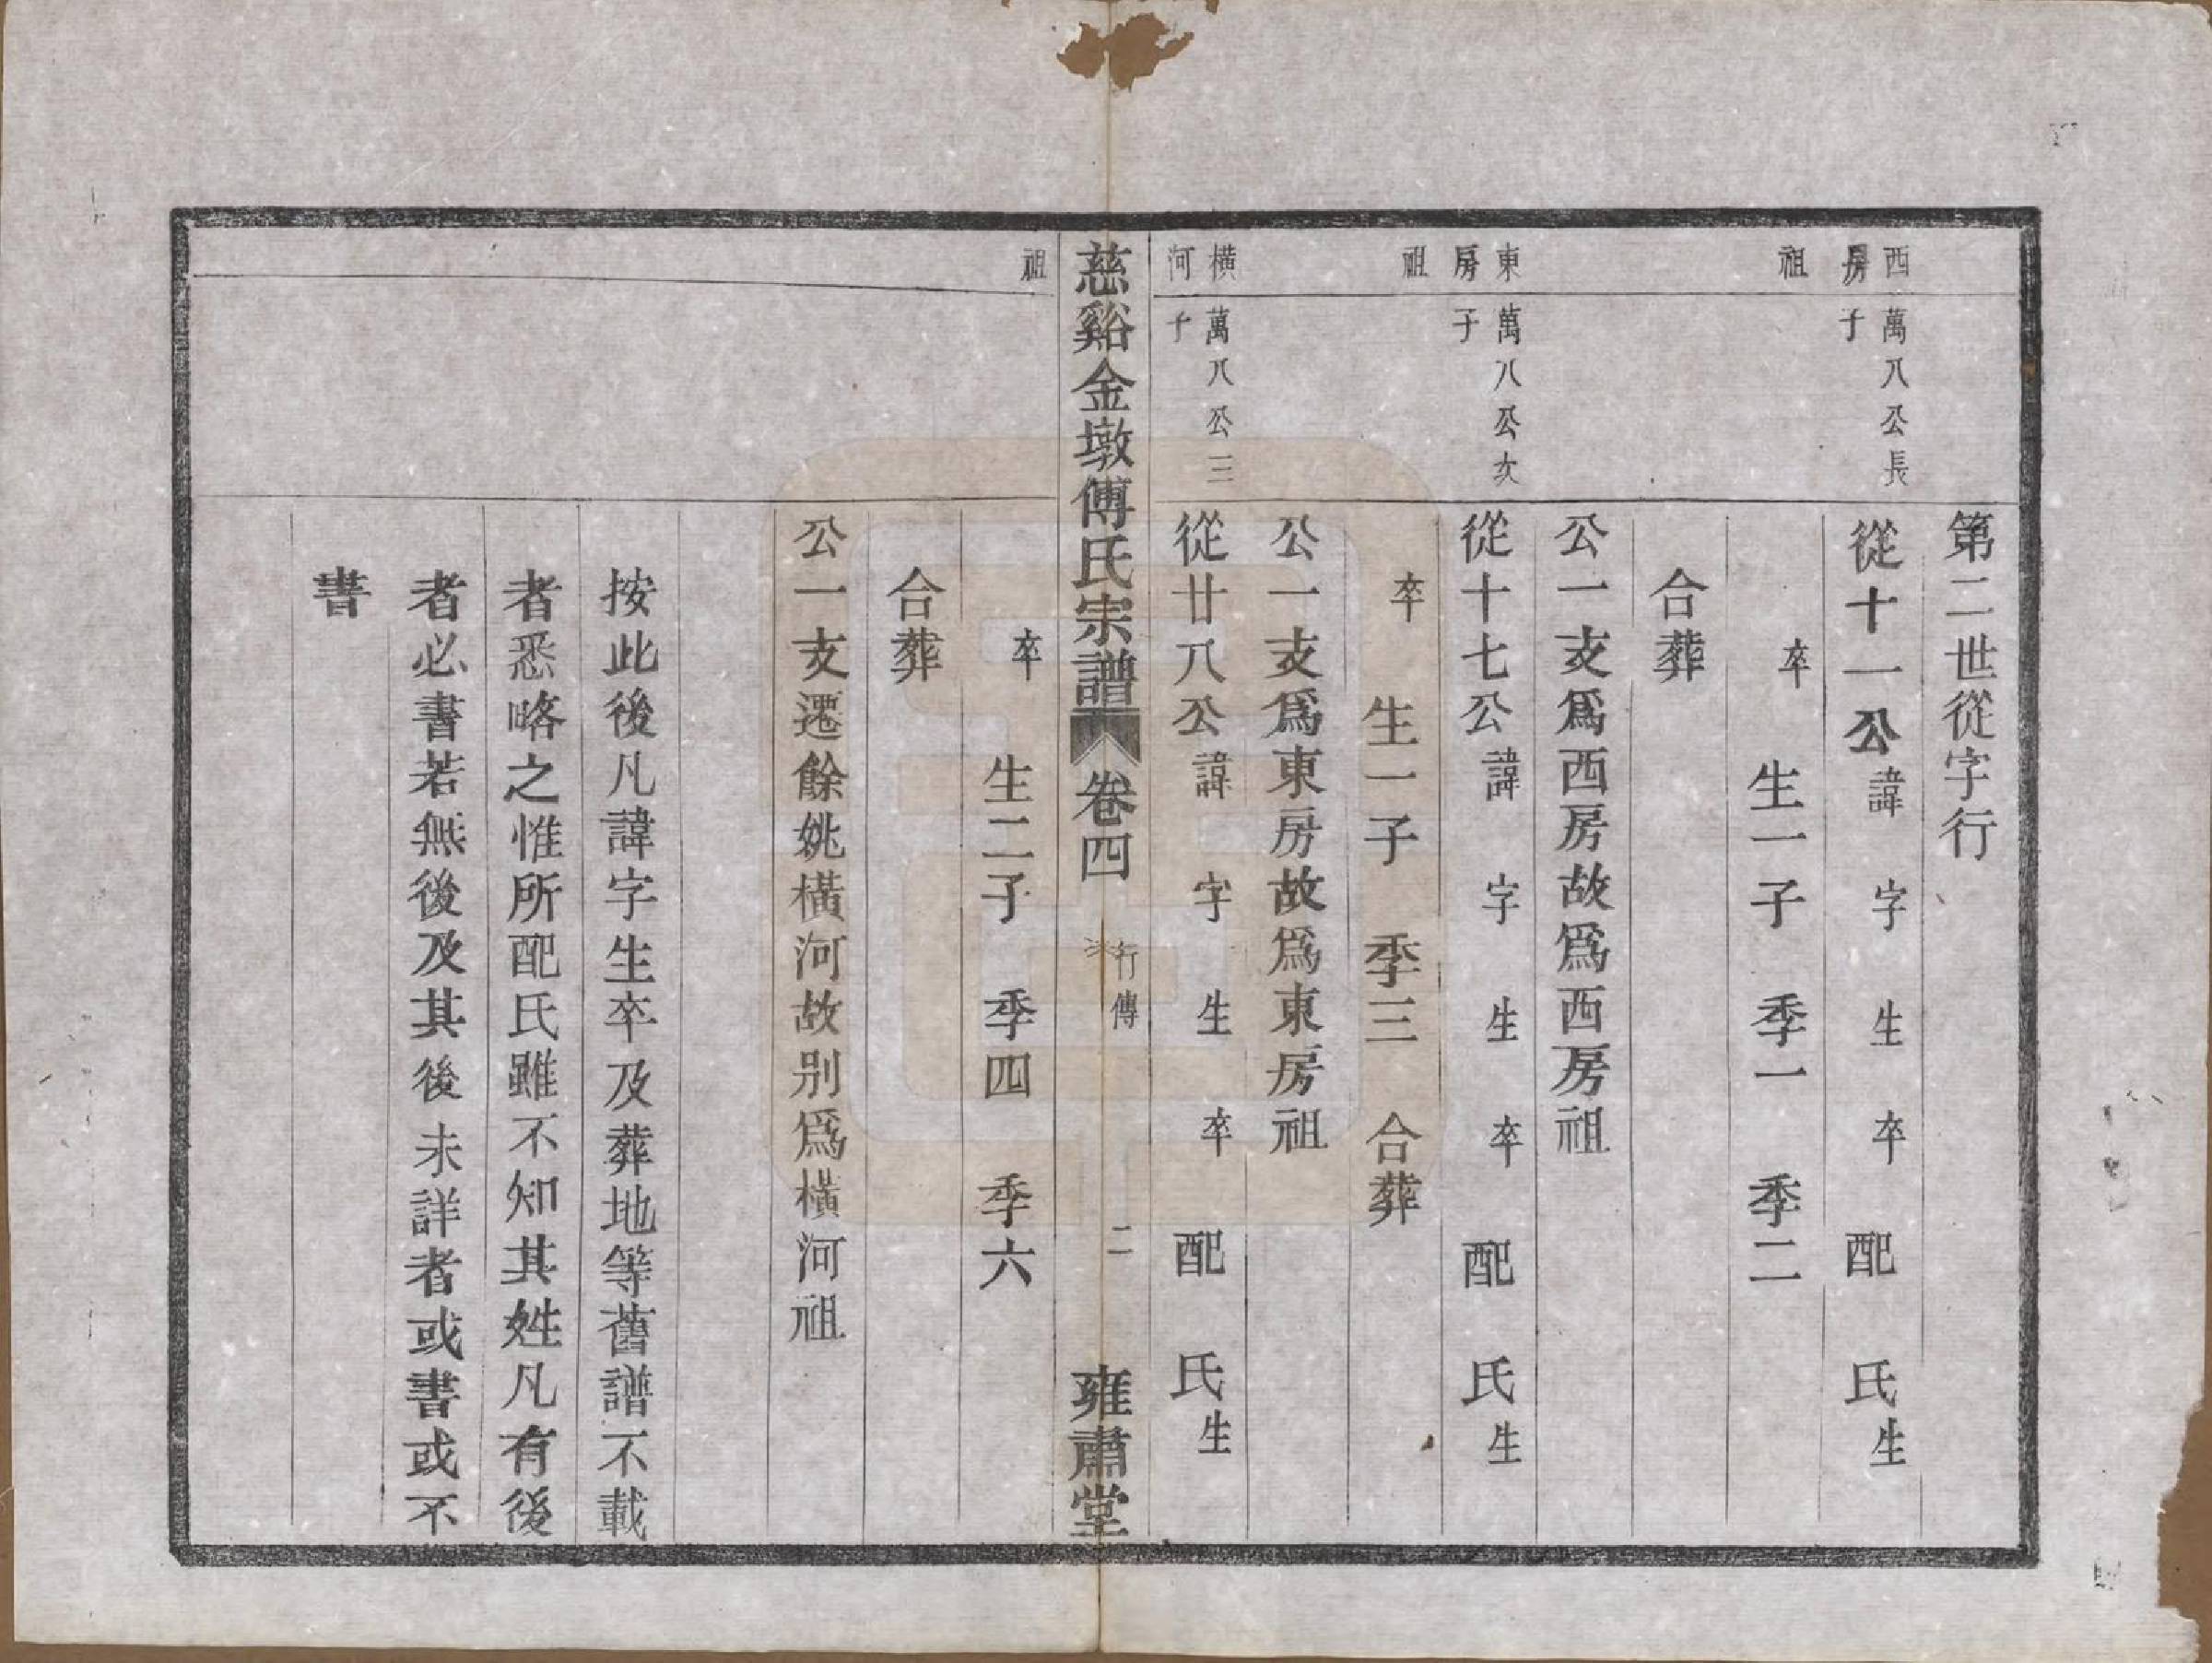 第二世從字行
西房祖
萬八公長子
從十一公諱　字　生　卒　配　氏生
卒　生一子　季一　季二
合葬
公一支爲西房故爲西房祖
東房祖
萬八公次子
從十七公諱　字　生　卒　配　氏生
卒　生一子　季三　合葬
公一支爲東房故爲東房祖
橫河祖
萬八公三子
從廿八公諱　字　生　卒　配　氏生
慈谿金墩傅氏宗譜　卷四　行傳　二　雍肅堂
卒　生二子　季四　季六
合葬
公一支遷餘姚橫河故别爲橫河祖
按此後凡諱字生卒及葬地等舊譜不載
者悉略之惟所配氏雖不知其姓凡有後
者必書若無後及其後未詳者或書或不
書